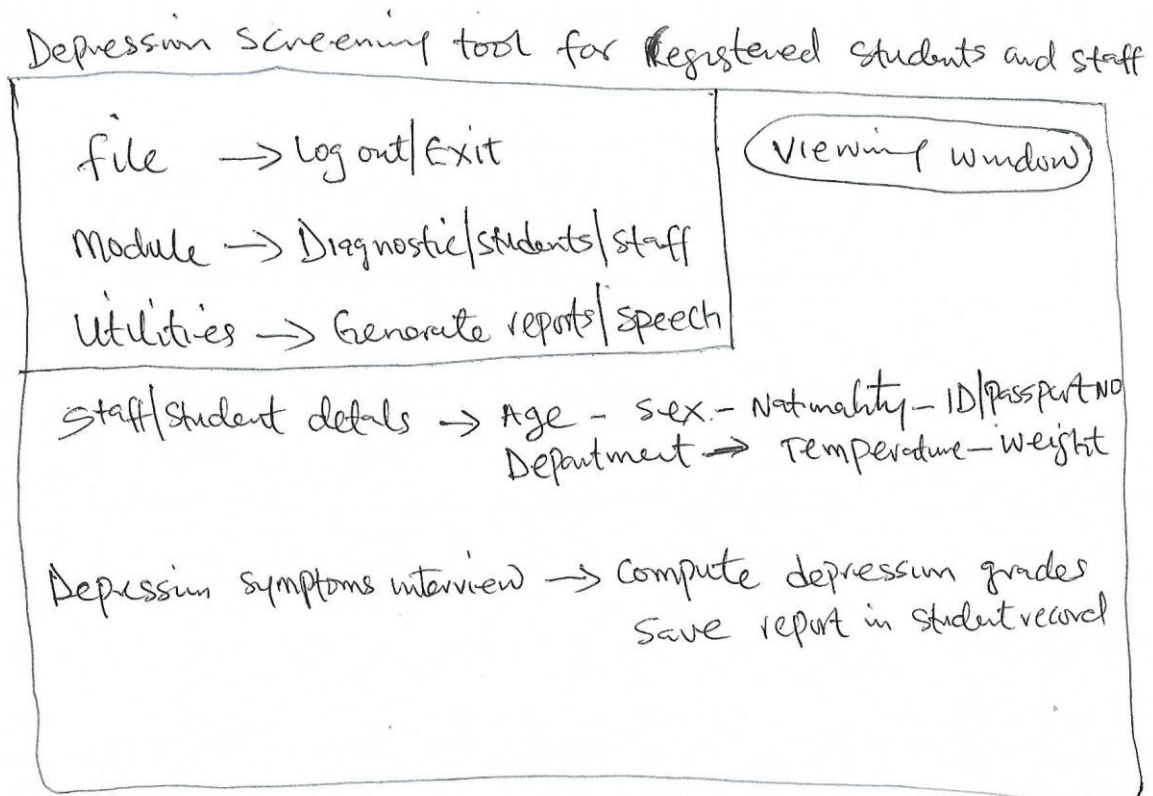 Depression screening tool for Registered students and staff
file → Log out/Exit
Viewing window
Module → Diagnostic/students/staff
Utilities → Generate reports/speech
Staff/student detals → Age - Sex - Nationality - ID/Passport NO
Department → Temperature - Weight
Depression symptoms interview → Compute depression grades
Save report in student record